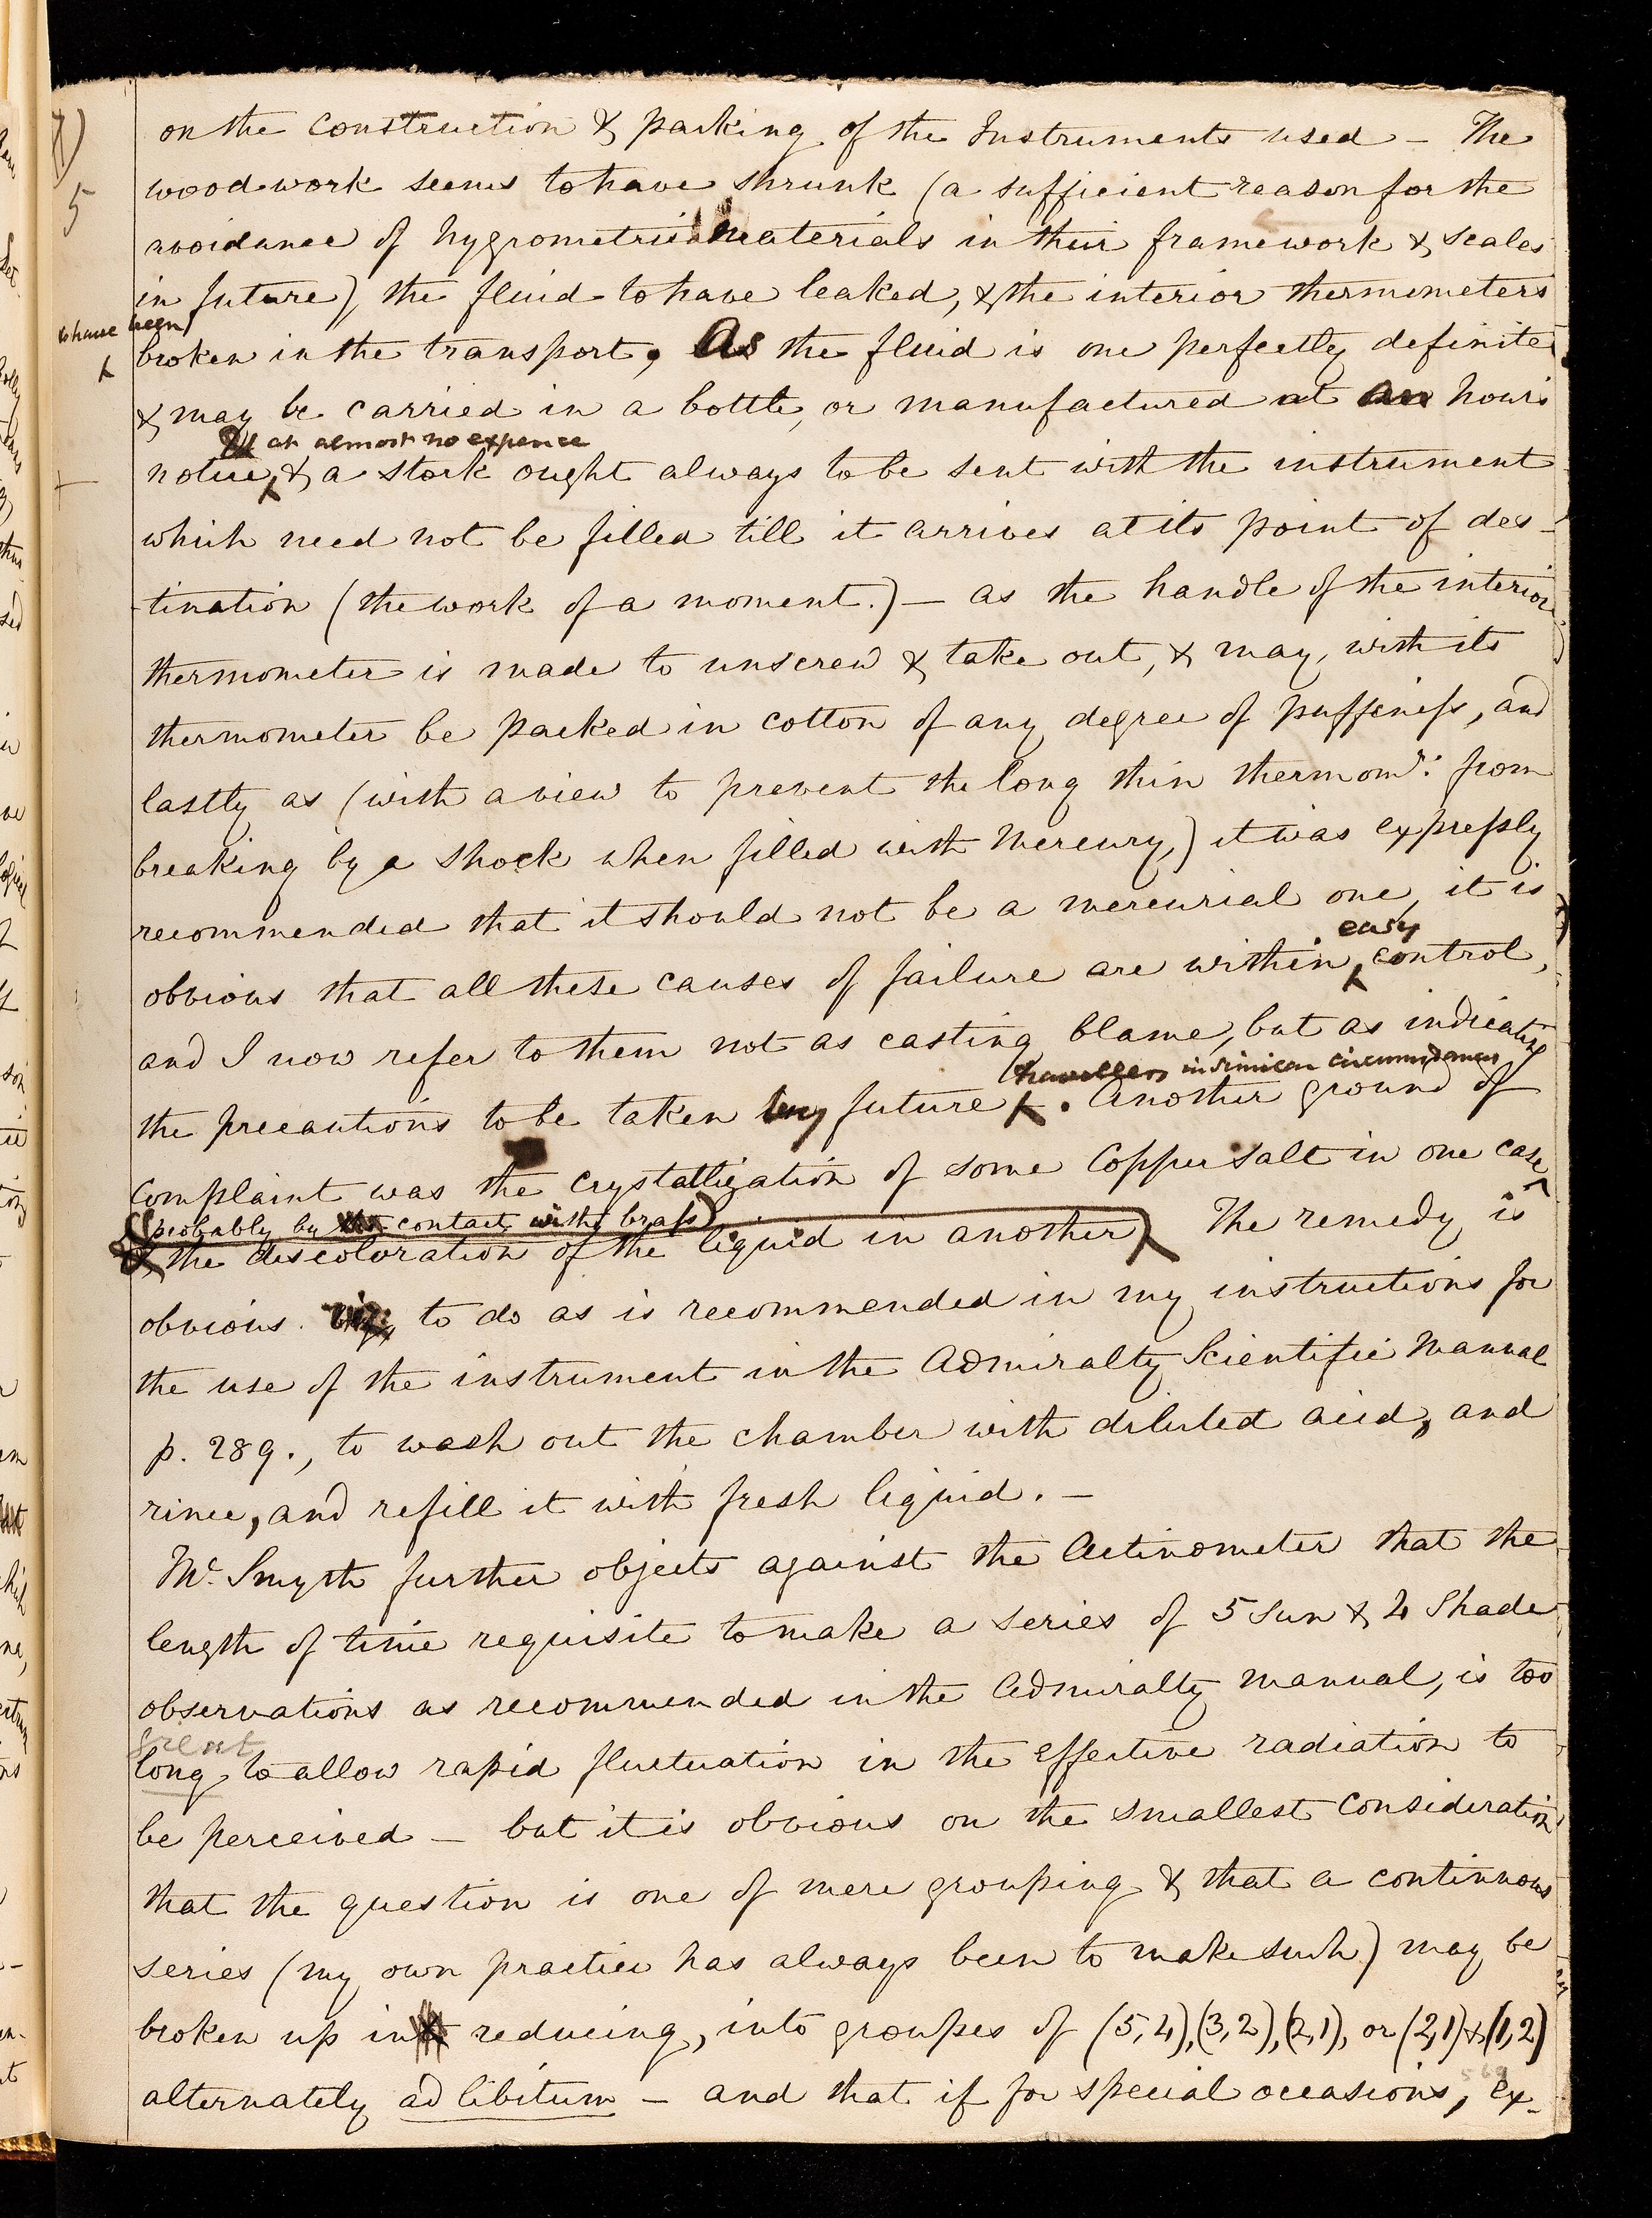 7)
5
on the construction & packing of the Instruments used – The
woodwork seems to have shrunk (a sufficient reason for the
avoidance of hygrometric materials in their framework & scales
in future), the fluid to have leaked, & the interior thermometers
to have been
broken in the transport. As the fluid is one perfectly definite
& may be carried in a bottle, or manufactured at an hours
at almost no expence
notice, & a stock ought always to be sent with the instrument
which need not be filled till it arrives at its point of des-
-tination (the work of a moment.) – as the handle of the interior
thermometer is made to unscrew & take out, & may, with its
thermometer be packed in cotton of any degree of puffiness, and
lastly as (with a view to prevent the long thin thermomr: from
breaking by a shock when filled with Mercury,) it was expressly
recommended that it should not be a mercurial one, it is
easy
obvious that all these causes of failure are within control,
and I now refer to them not as casting blame, but as indicating
travellers in similar circumstances
the precautions to be taken by future . Another ground of
complaint was the crystallization of some Copper salt in one case
(probably by the contact with brass)
& the discoloration of the liquid in another) The remedy is
obvious. viz: to do as is recommended in my instructions for
the use of the instrument in the Admiralty Scientific Manual
p. 289., to wash out the chamber with diluted acid, and
rince, and refill it with fresh liquid. –
Mr. Smyth further objects against the Actinometer that the
length of time requisite to make a series of 5 Sun & 4 Shade
observations as recommended in the Admiralty Manual, is too
great
long to allow rapid fluctuation in the effective radiation to
be perceived – but it is obvious on the smallest consideration
that the question is one of mere grouping & that a continuous
series (my own practice has always been to make such) may be
broken up in reducing, into groupes of (5,4),(3,2),(2,1), or (2,1) & (1,2)
alternately ad libitum – and that if for special occasions, ex-